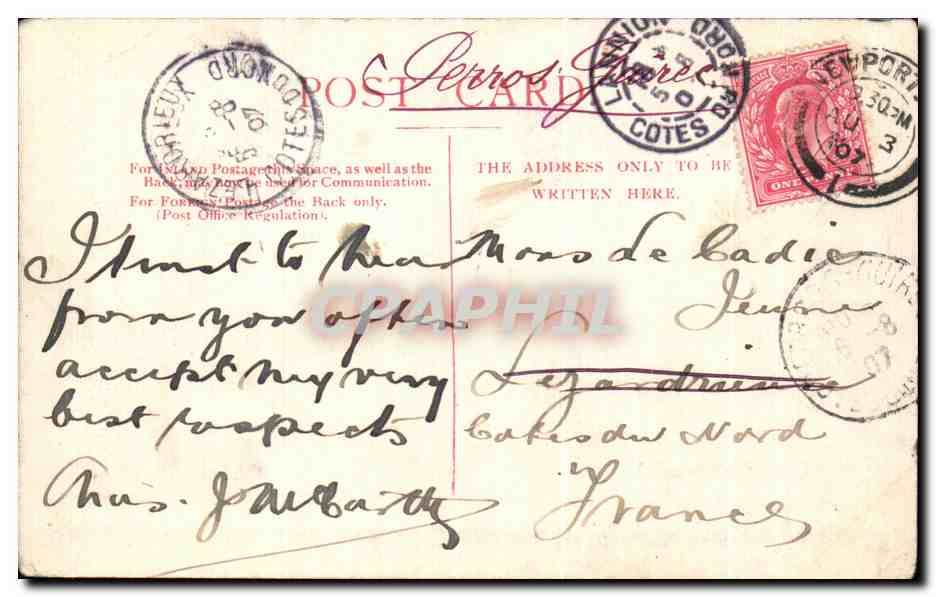 Perros Guirec
POST CARD
LEZARDRIEUX
COTES DU NORD
LANNION
COTES DU NORD
NEWPORT
8.30 PM
AU 3
07
ONE
FOR INLAND Postage this Space, as well as the
Back, may now be used for Communication.
For FOREIGN Postage the Back only.
(Post Office Regulation).
THE ADDRESS ONLY TO BE
WRITTEN HERE.
I trust to hear
from you often
accept my very
best respects
Chas. J McCarthy
Mons Le Cadic
Jeune
Lezardrieux
Cotes du Nord
France
8
07
CPARHIL